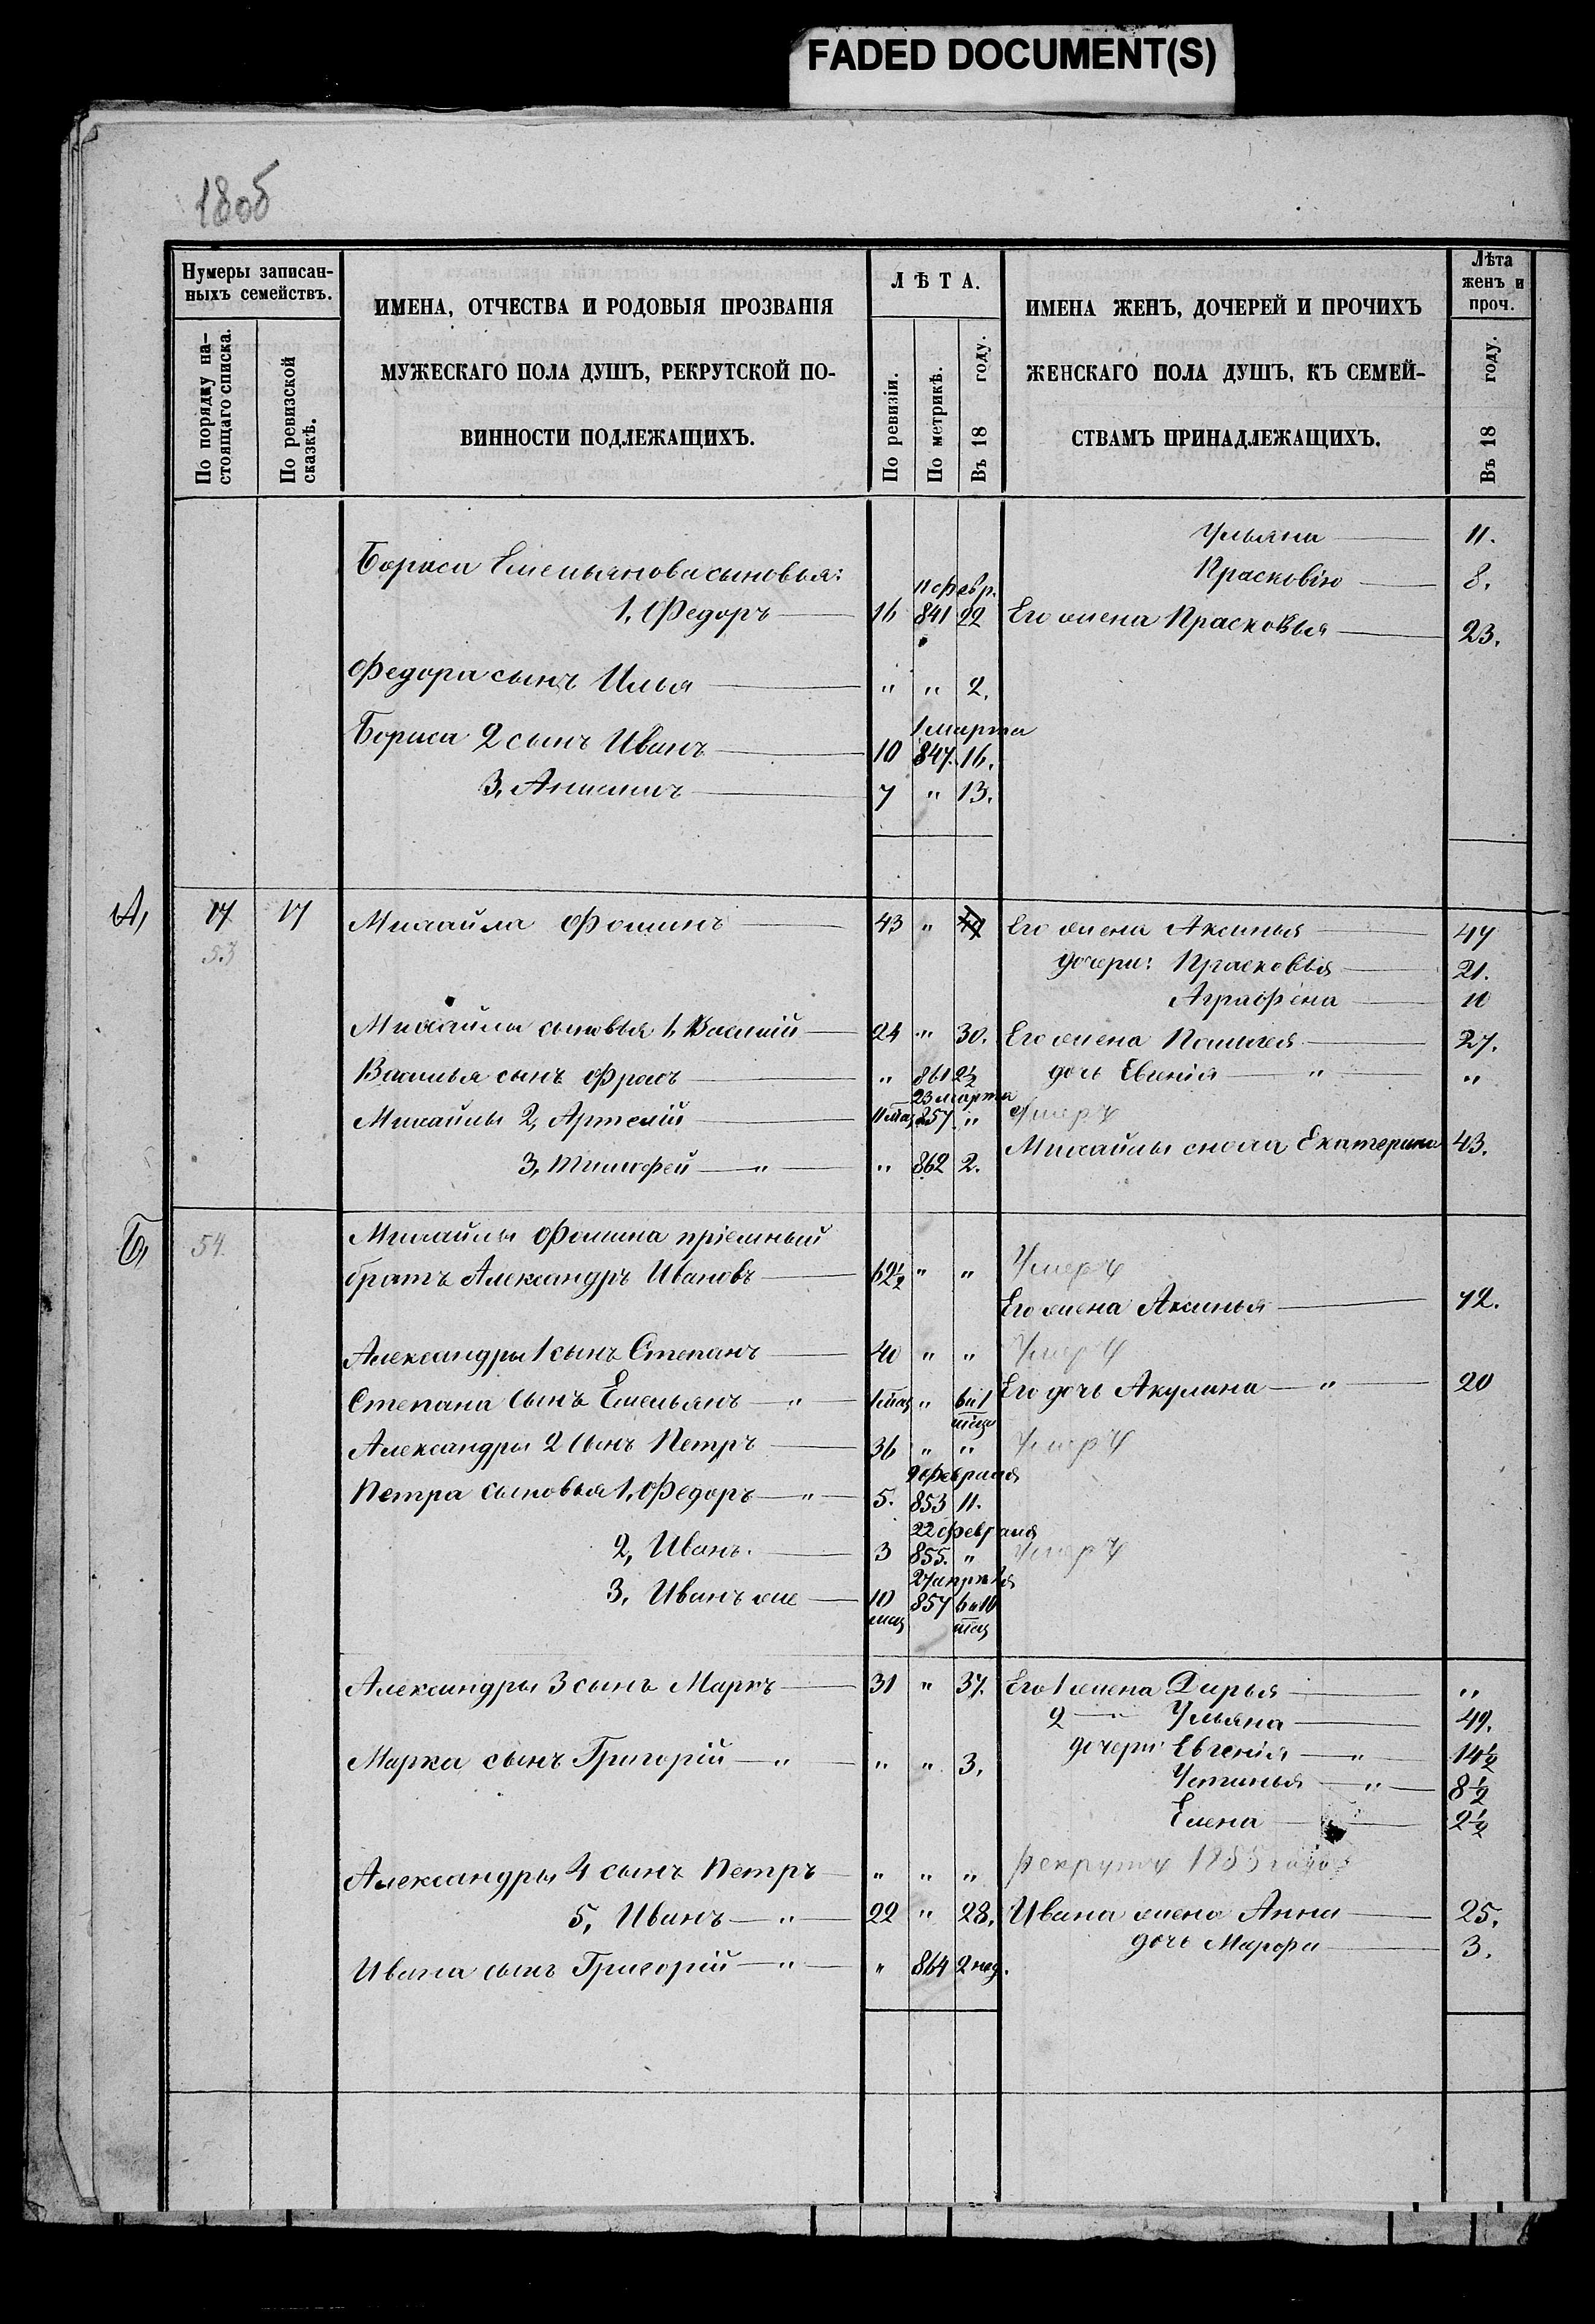 FADED DOCUMENT(S)
180б
Нумеры записан-
ныхъ семействъ.
По порядку на-
стоящаго списка.
По ревизской
сказкѣ.
ИМЕНА, ОТЧЕСТВА И РОДОВЫЯ ПРОЗВАНІЯ
МУЖЕСКАГО ПОЛА ДУШЪ, РЕКРУТСКОЙ ПО-
ВИННОСТИ ПОДЛЕЖАЩИХЪ.
ЛѢТА.
По ревизіи.
По метрикѣ.
Въ 18 году.
ИМЕНА ЖЕНЪ, ДОЧЕРЕЙ И ПРОЧИХЪ
ЖЕНСКАГО ПОЛА ДУШЪ, КЪ СЕМЕЙ-
СТВАМЪ ПРИНАДЛЕЖАЩИХЪ.
Лѣта
женъ и
проч.
Въ 18 году.
Ульяна 11.
Прасковію 8.
Бориса Емельянова сыновья:
11 февр.
1, Федоръ 16 841 22 Его жена Прасковья 23.
Федора сынъ Илья " " 2.
1 марта
Бориса 2 сынъ Иванъ 10 847. 16.
3, Анисимъ 7 " 13.
А, 17 17 Михайла Фоминъ 43 " 49 Его жена Аксинья 47
53 дочери: Прасковья 21.
Аграфена 10
Михайлы сыновья 1, Василій 24 " 30. Его жена Пелагея 27.
Василья сынъ Фролъ " 861 2½ дочь Евгенія " "
23 марта
Михайлы 2, Артемій 11 мац 857 " Умеръ
Михайлы сноха Екатерина 43.
3, Тимофей " " 862 2.
Б, 54. Михайлы Фомина пріемный
братъ Александръ Ивановъ 62½ " " Умеръ
Его жена Аксинья 72.
Александры 1 сынъ Степанъ 40 " " Умеръ
Степана сынъ Емельянъ " 1 мац " 6 и 1 Его дочь Акулина " 20
мацъ
Александры 2 сынъ Петръ 36 " " Умеръ
9 февраля
Петра сыновья 1, Федоръ " 5. 853 11.
22 февраля
2, Иванъ. 3 855. " Умеръ
27 апрѣля
3. Иванъ же 10 857 6 и 10
мац мац
Александры 3 сынъ Маркъ 31 " 37. Его 1 жена Дарья "
2 " Ульяна 49.
дочери Евгенія " 14½
Марка сынъ Григорій " " " 3.
Устинья " 8½
Елена 2½
Александры 4 сынъ Петръ " " " Рекрутъ 1855 года
5, Иванъ " 22 " 28. Ивана жена Анна 25.
дочь Марфа 3.
Ивана сынъ Григорій " " 864 2 нед.